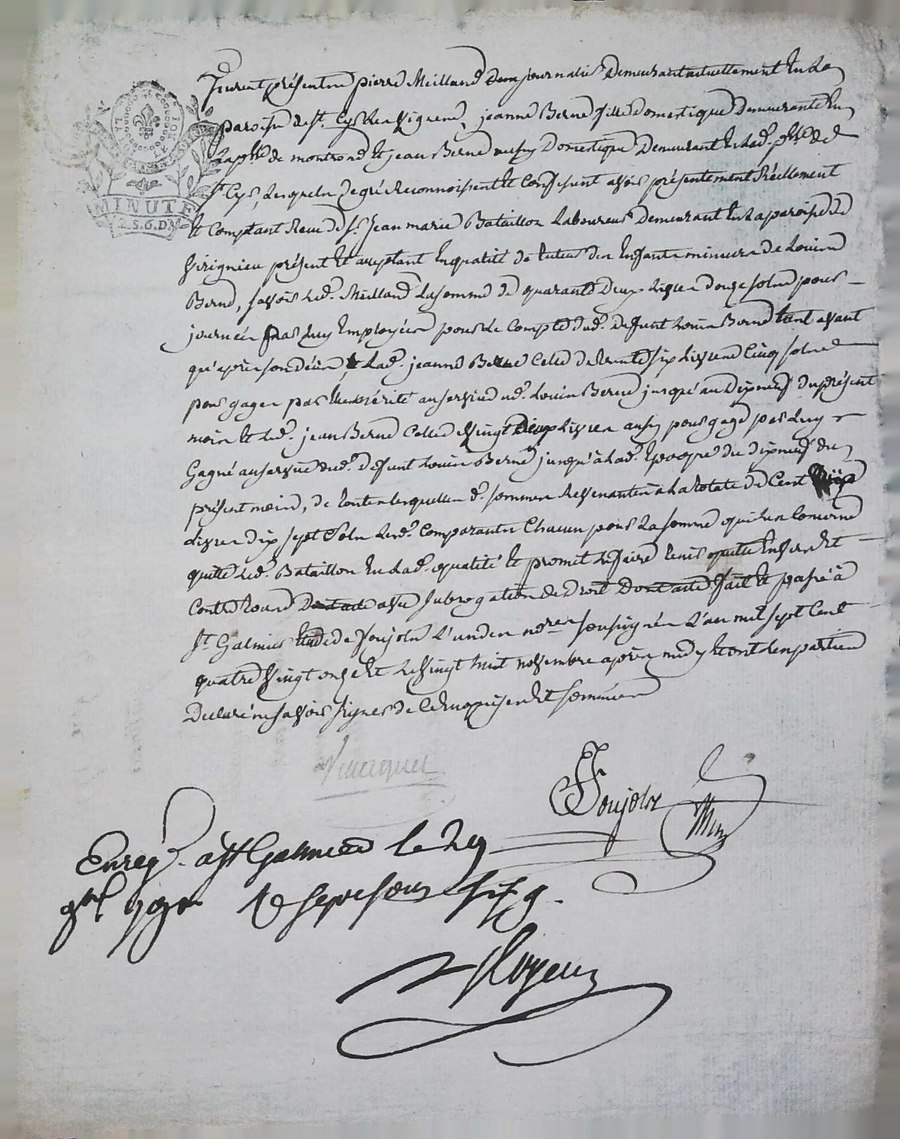 LA LOI LE ROI
MINUTE
4. S. 6. D.
furent présents pierre Meilland journalier Demeurant actuellement En La
paroisse de st. Cyr les Vignes, jeanne Berne fille domestique Demeurante En
La psse de montrond Et jean Berne aussy Domestique Demeurant En Lad. psse de
st. Cyr, Lesquels de gré Reconnoissent Et Confessent avoir présentement Réellement
Et Comptant Receu de sr. Jean marie Bataillon Laboureur Demeurant En La paroisse de
Virignieu présent Et acceptant En qualité de tuteur des Enfants mineurs de Louis
Berne, savoir Led. Meilland La somme de quarante deux Livres douze sols pour
journées par Luy Employées pour Le Compte dud. defunt Louis Berne tant avant
qu'après son décès Lad. jeanne Berne Celle de trente six Livres Cinq sols
pour gages par mérité au service dud. Louis Berne jusqu'au Dix neuf du présent
mois Et Led. jean Berne Celle de vingt Deux Livres aussy pour gage par Luy
Gagné au service dud. defunt Louis Berne jusqu'à Lad. Epoque du dix neuf du
présent mois, de toutes Lesquelles d. sommes Revenantes à La totale de Cent
Livres dix sept sols Lesd. Comparants Chacun pour La somme qui Les Concerne
quitte Led. Bataillon En Lad. qualité Et promet Le faire tenir quitte Envers Et
Contre tous avec subrogation de Droit Dont acte fait Et passé à
St. Galmier Etude de Poujols L'un des nores soussignés L'an mil sept Cent
quatre vingt onze Et Le vingt huit novembre après midy Et ont Les parties
Declaré ne savoir signer de Ce Enquises Et sommées
Poujols
Enreg. à St Galmier le 29
9bre 1791 Rt sept sous six d.